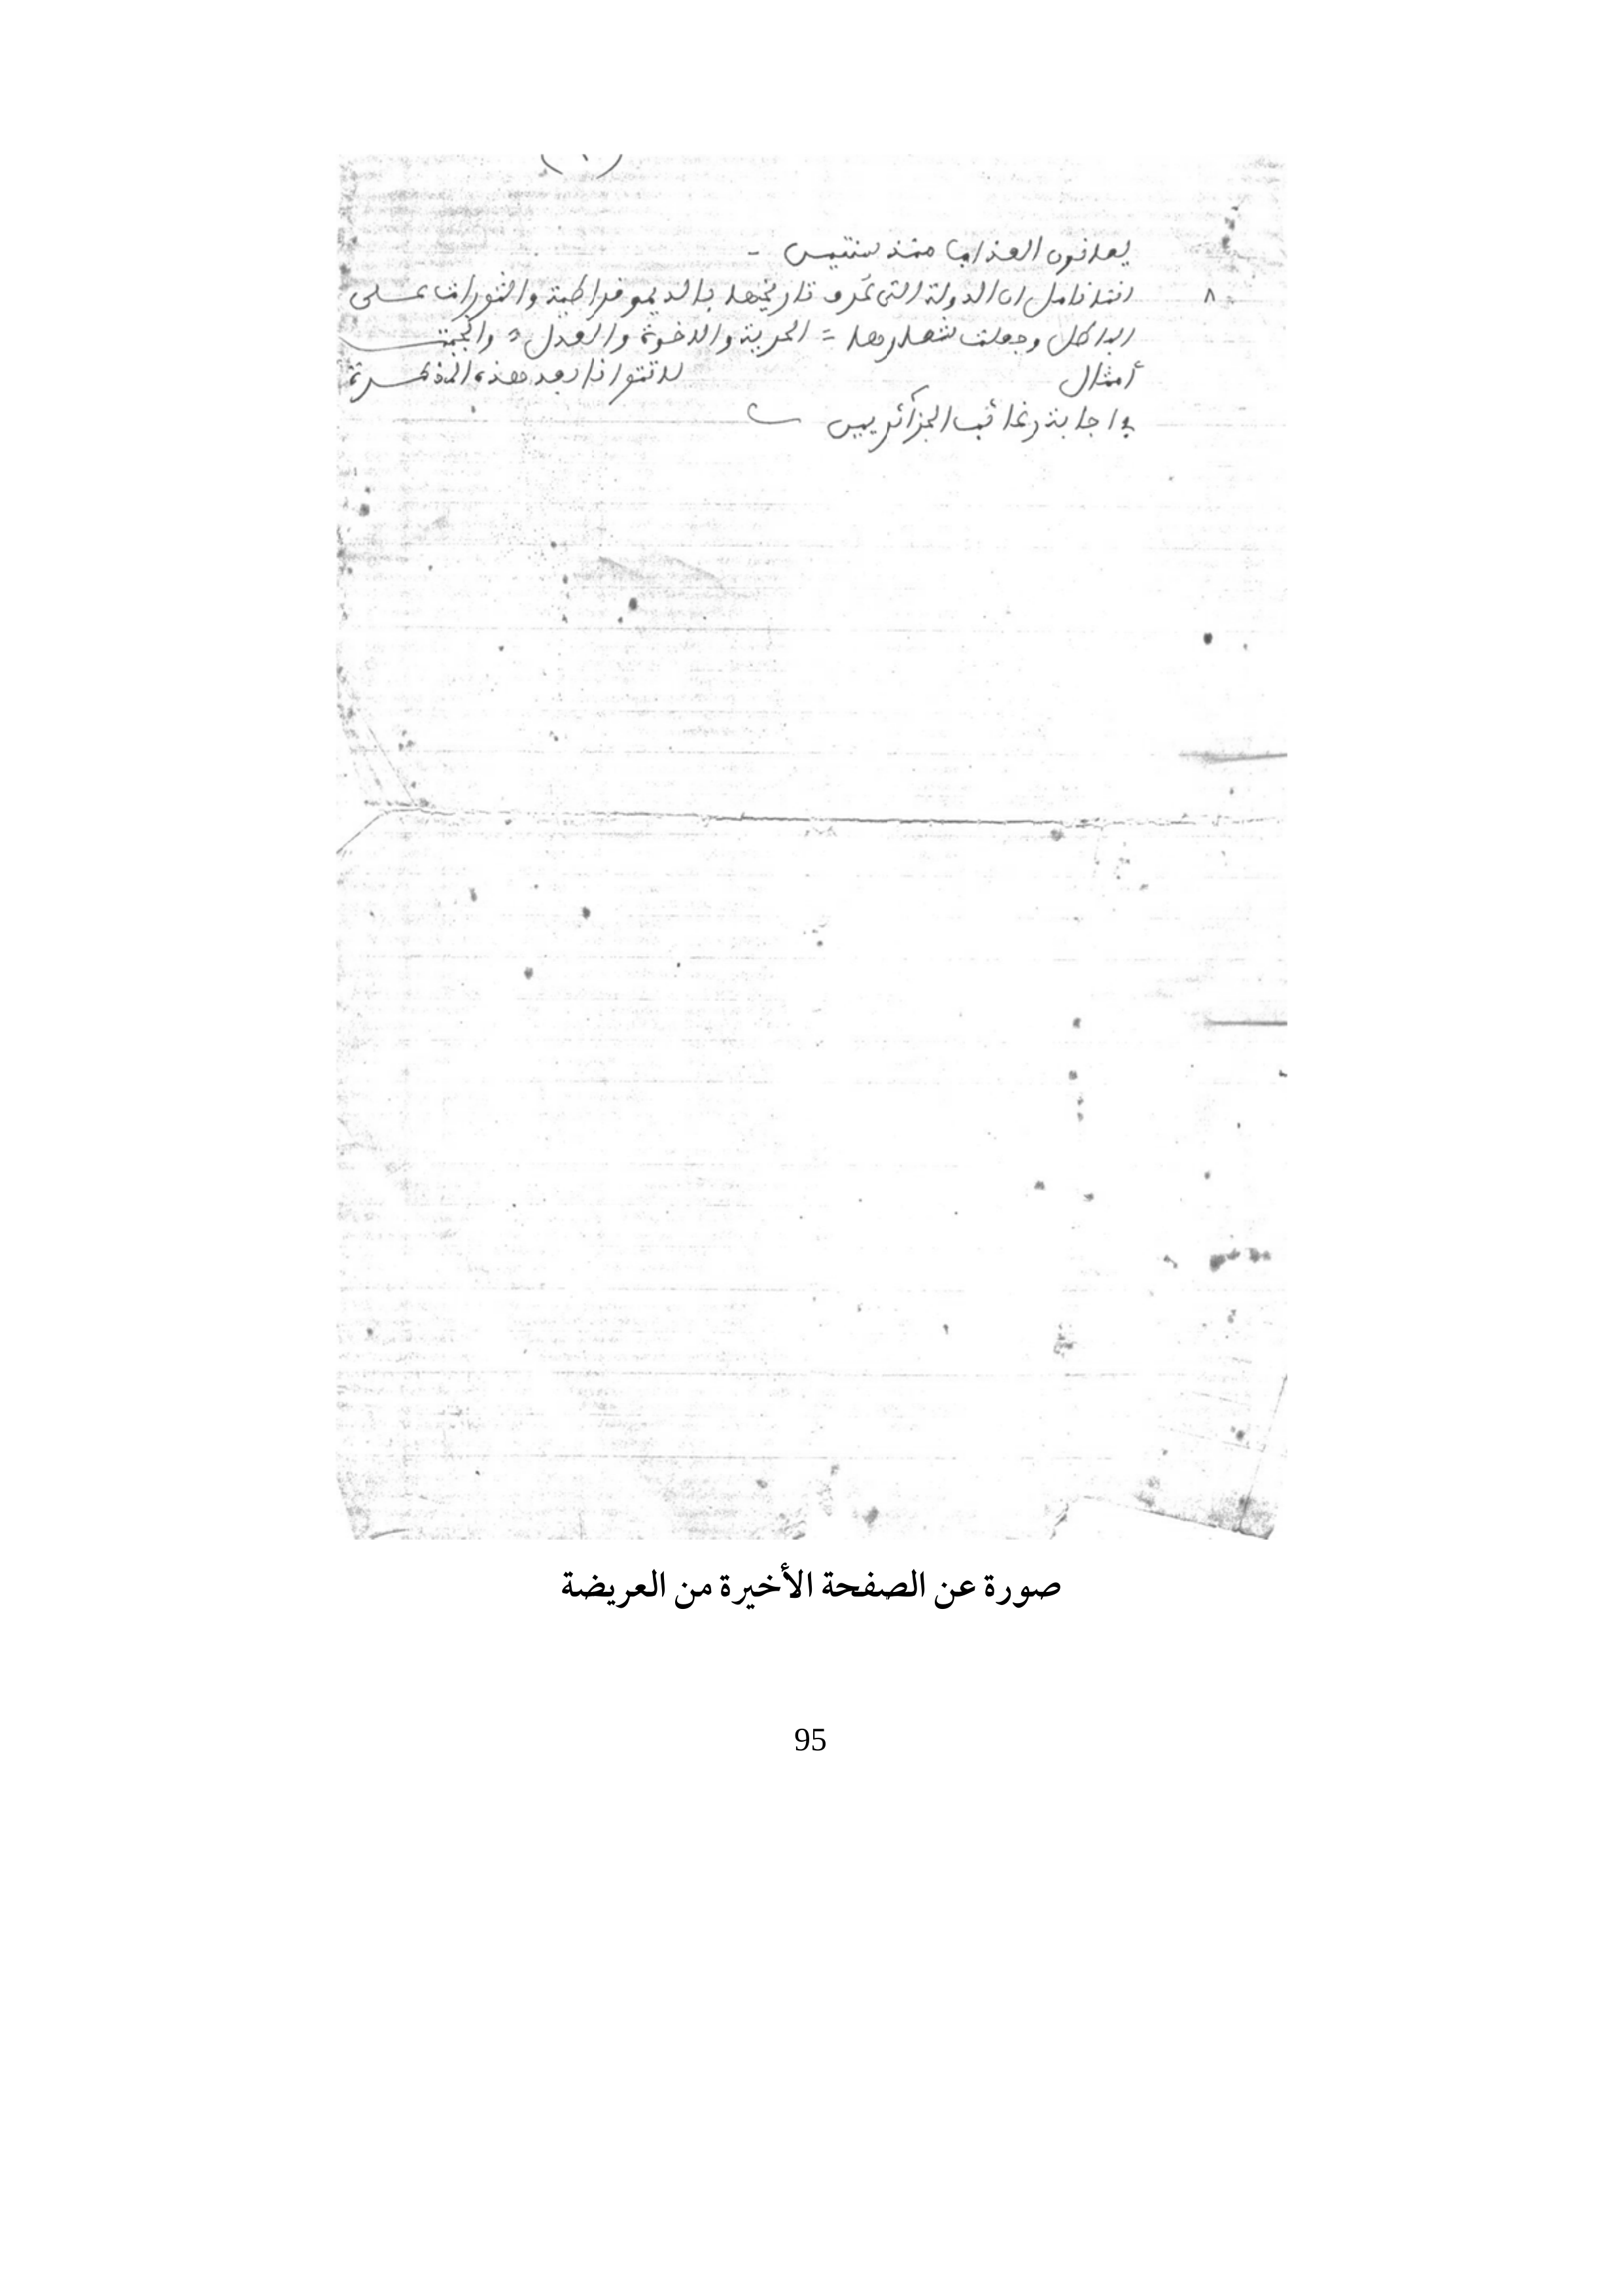 يعانون العذاب منذ سنتين -
٨ اننا نأمل ان الدولة التي عرف تاريخها بالديموقراطية والثورات على
الباطل وجعلت شعارها = الحرية والاخوة والعدل = وأنجبت
أمثال لا تتوانا بعد هذه المذكرة
في اجابة رغائب الجزائريين
صورة عن الصفحة الأخيرة من العريضة
95